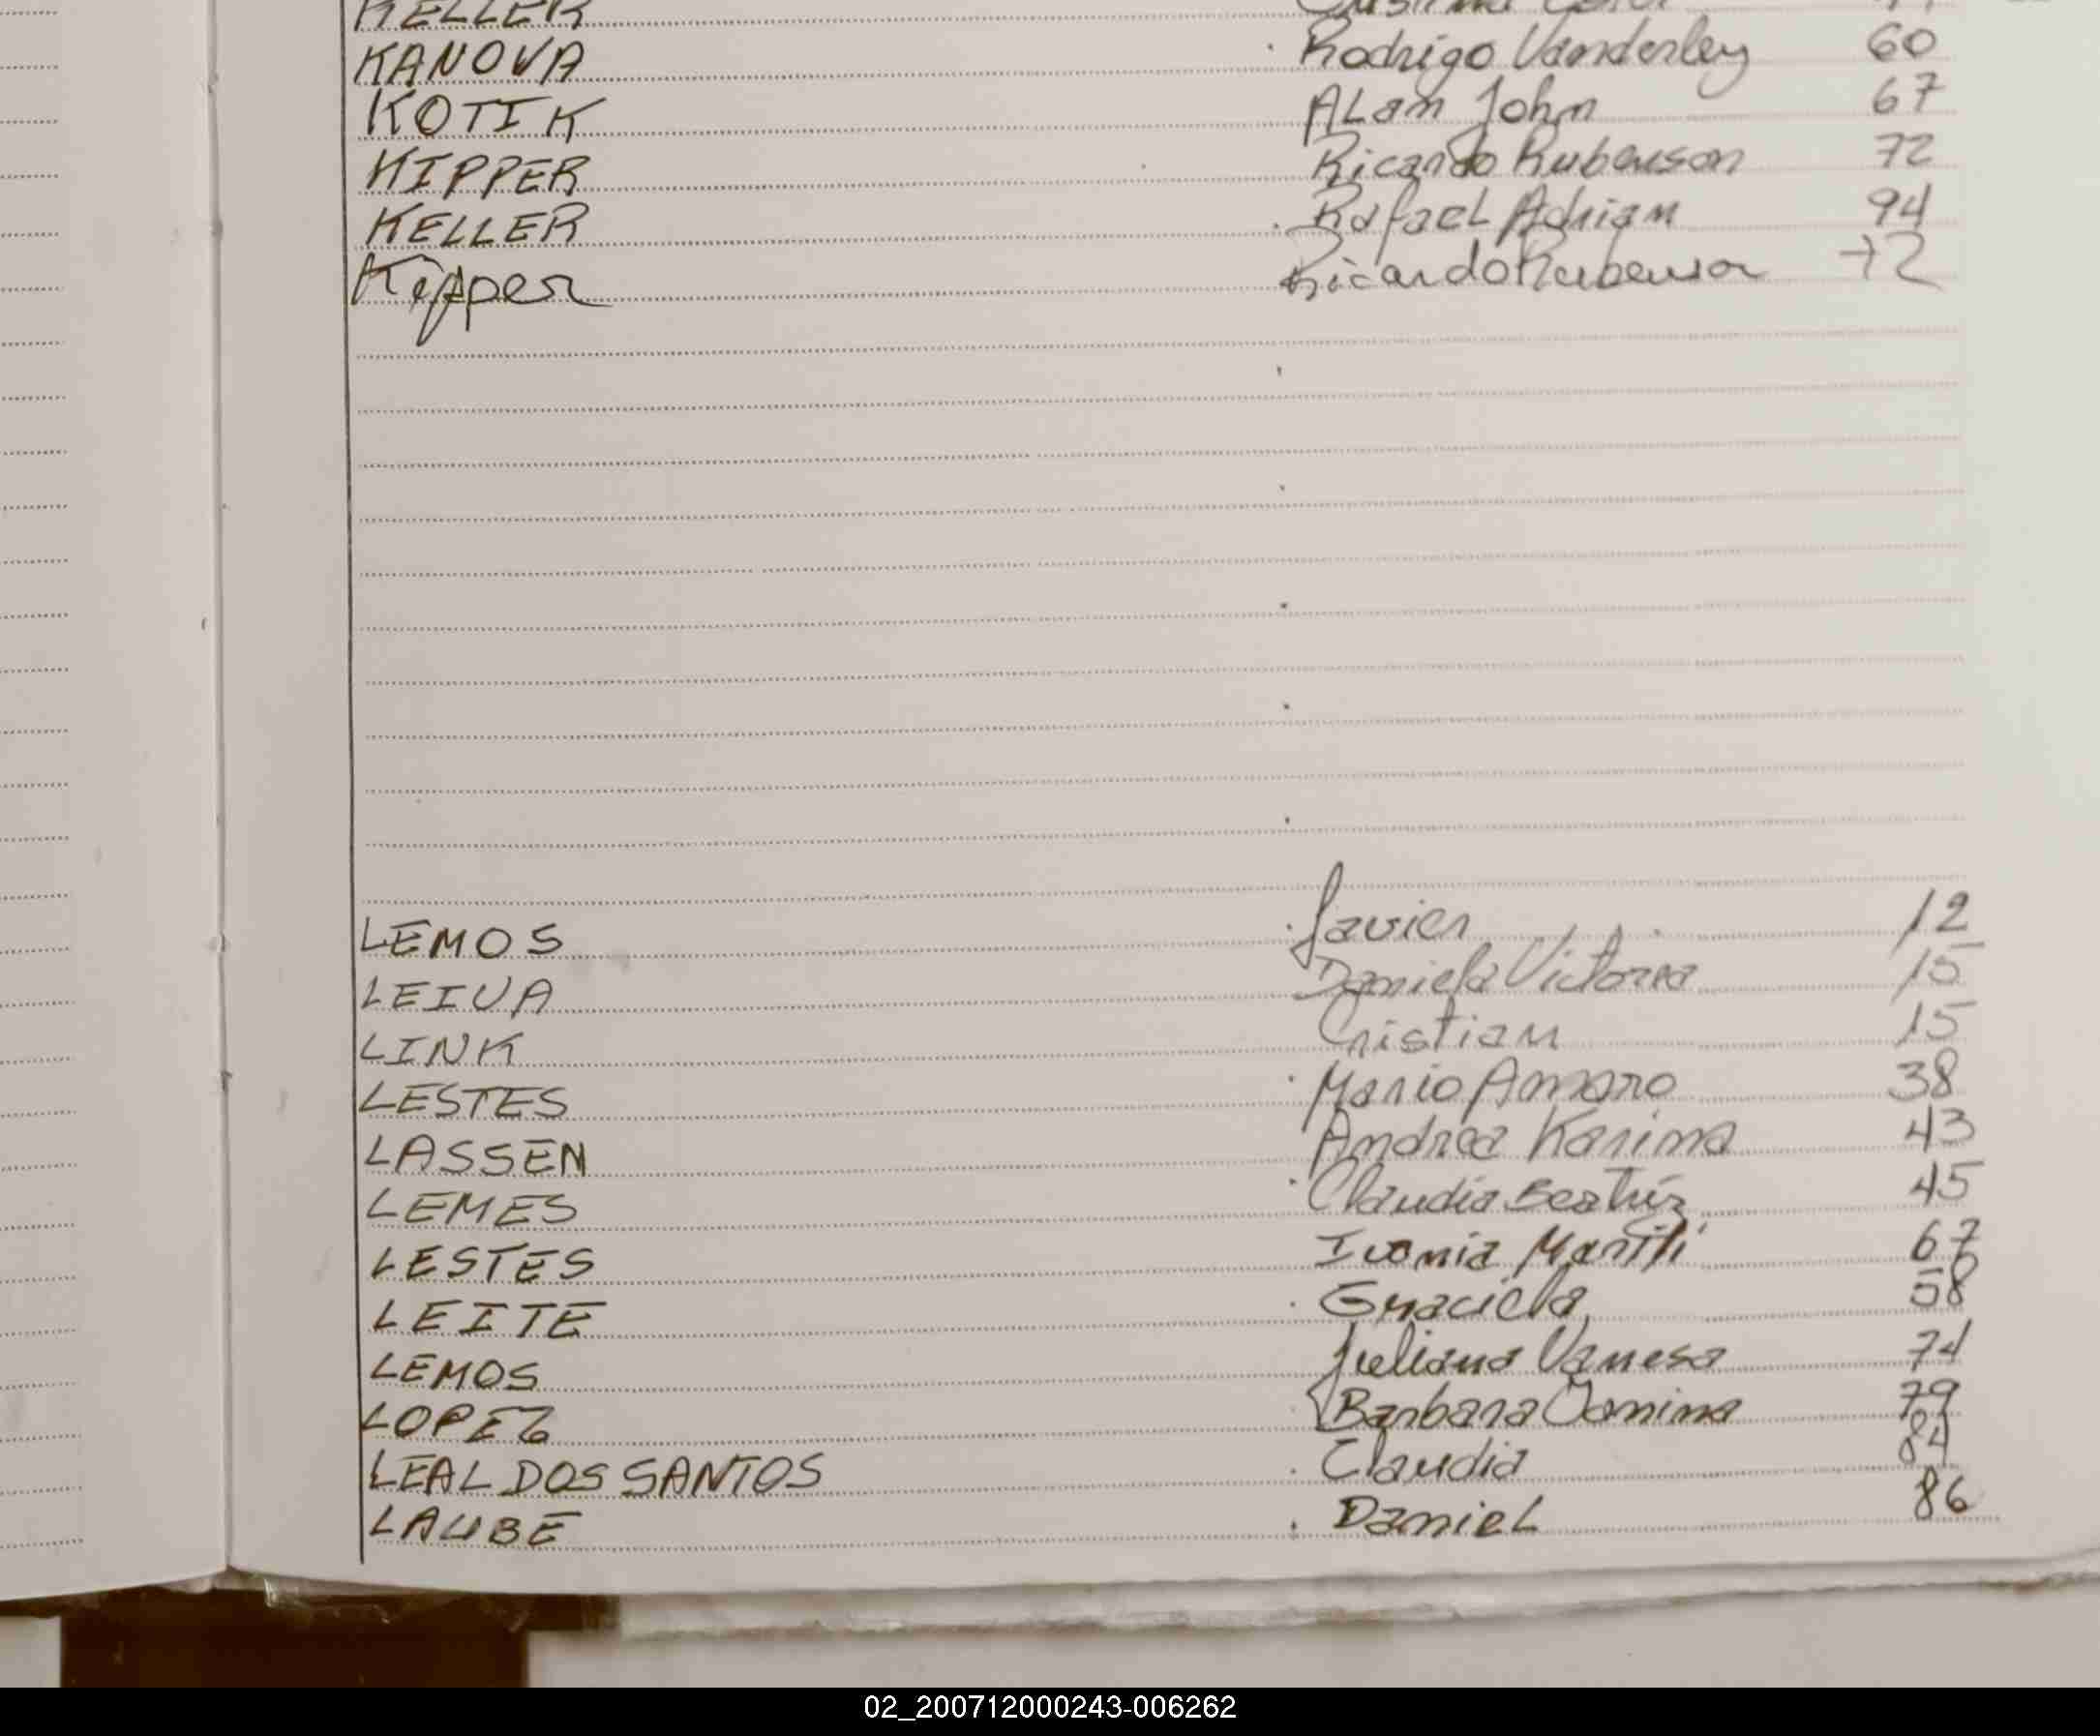 KELLER
KANOVA Rodrigo Vanderley 60
KOTIK ALan John 67
KIPPER Ricardo Rubenson 72
KELLER Rafael Adrian 94
Kipper Ricardo Rubenson 72
LEMOS Javier 12
LEIVA Daniela Victoria 15
LINK Cristian 15
LESTES Mario Amaro 38
LASSEN Andrea Karina 43
LEMES Claudia Beatriz 45
LESTES Ivonia Marili 67
LEITE Graciela 58
LEMOS Juliana Vanesa 74
LOPEZ Barbara Yanina 79
LEAL DOS SANTOS Claudia 84
LAUBE Daniel 86
02_200712000243-006262